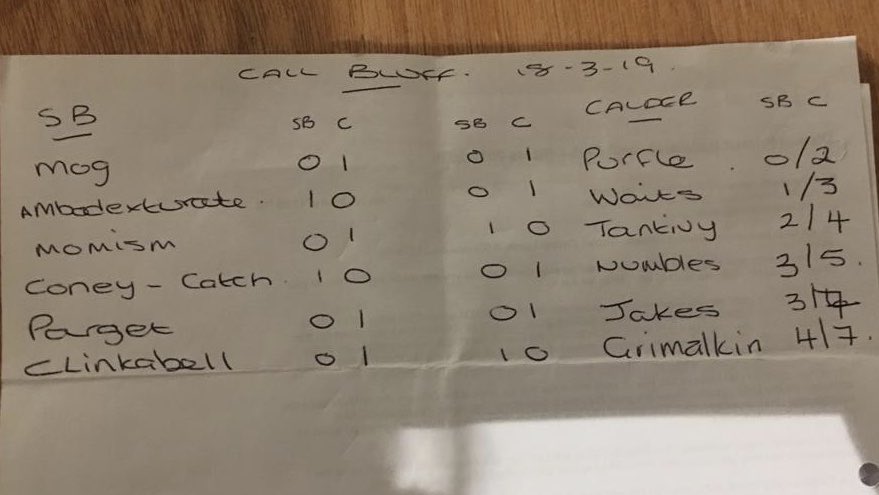 CALL BLUFF. 18-3-19.
SB SB C SB C CALDER SB C
Mog 0 1 0 1 Purfle . 0/2
AMbodexturate . 1 0 0 1 Waits 1/3
MOMISM 0 1 1 0 Tantivy 2/4
Coney - Catch . 1 0 0 1 Numbles 3/5.
Parget 0 1 0 1 Jakes 3/7
CLinkabell 0 1 1 0 Grimalkin 4/7.